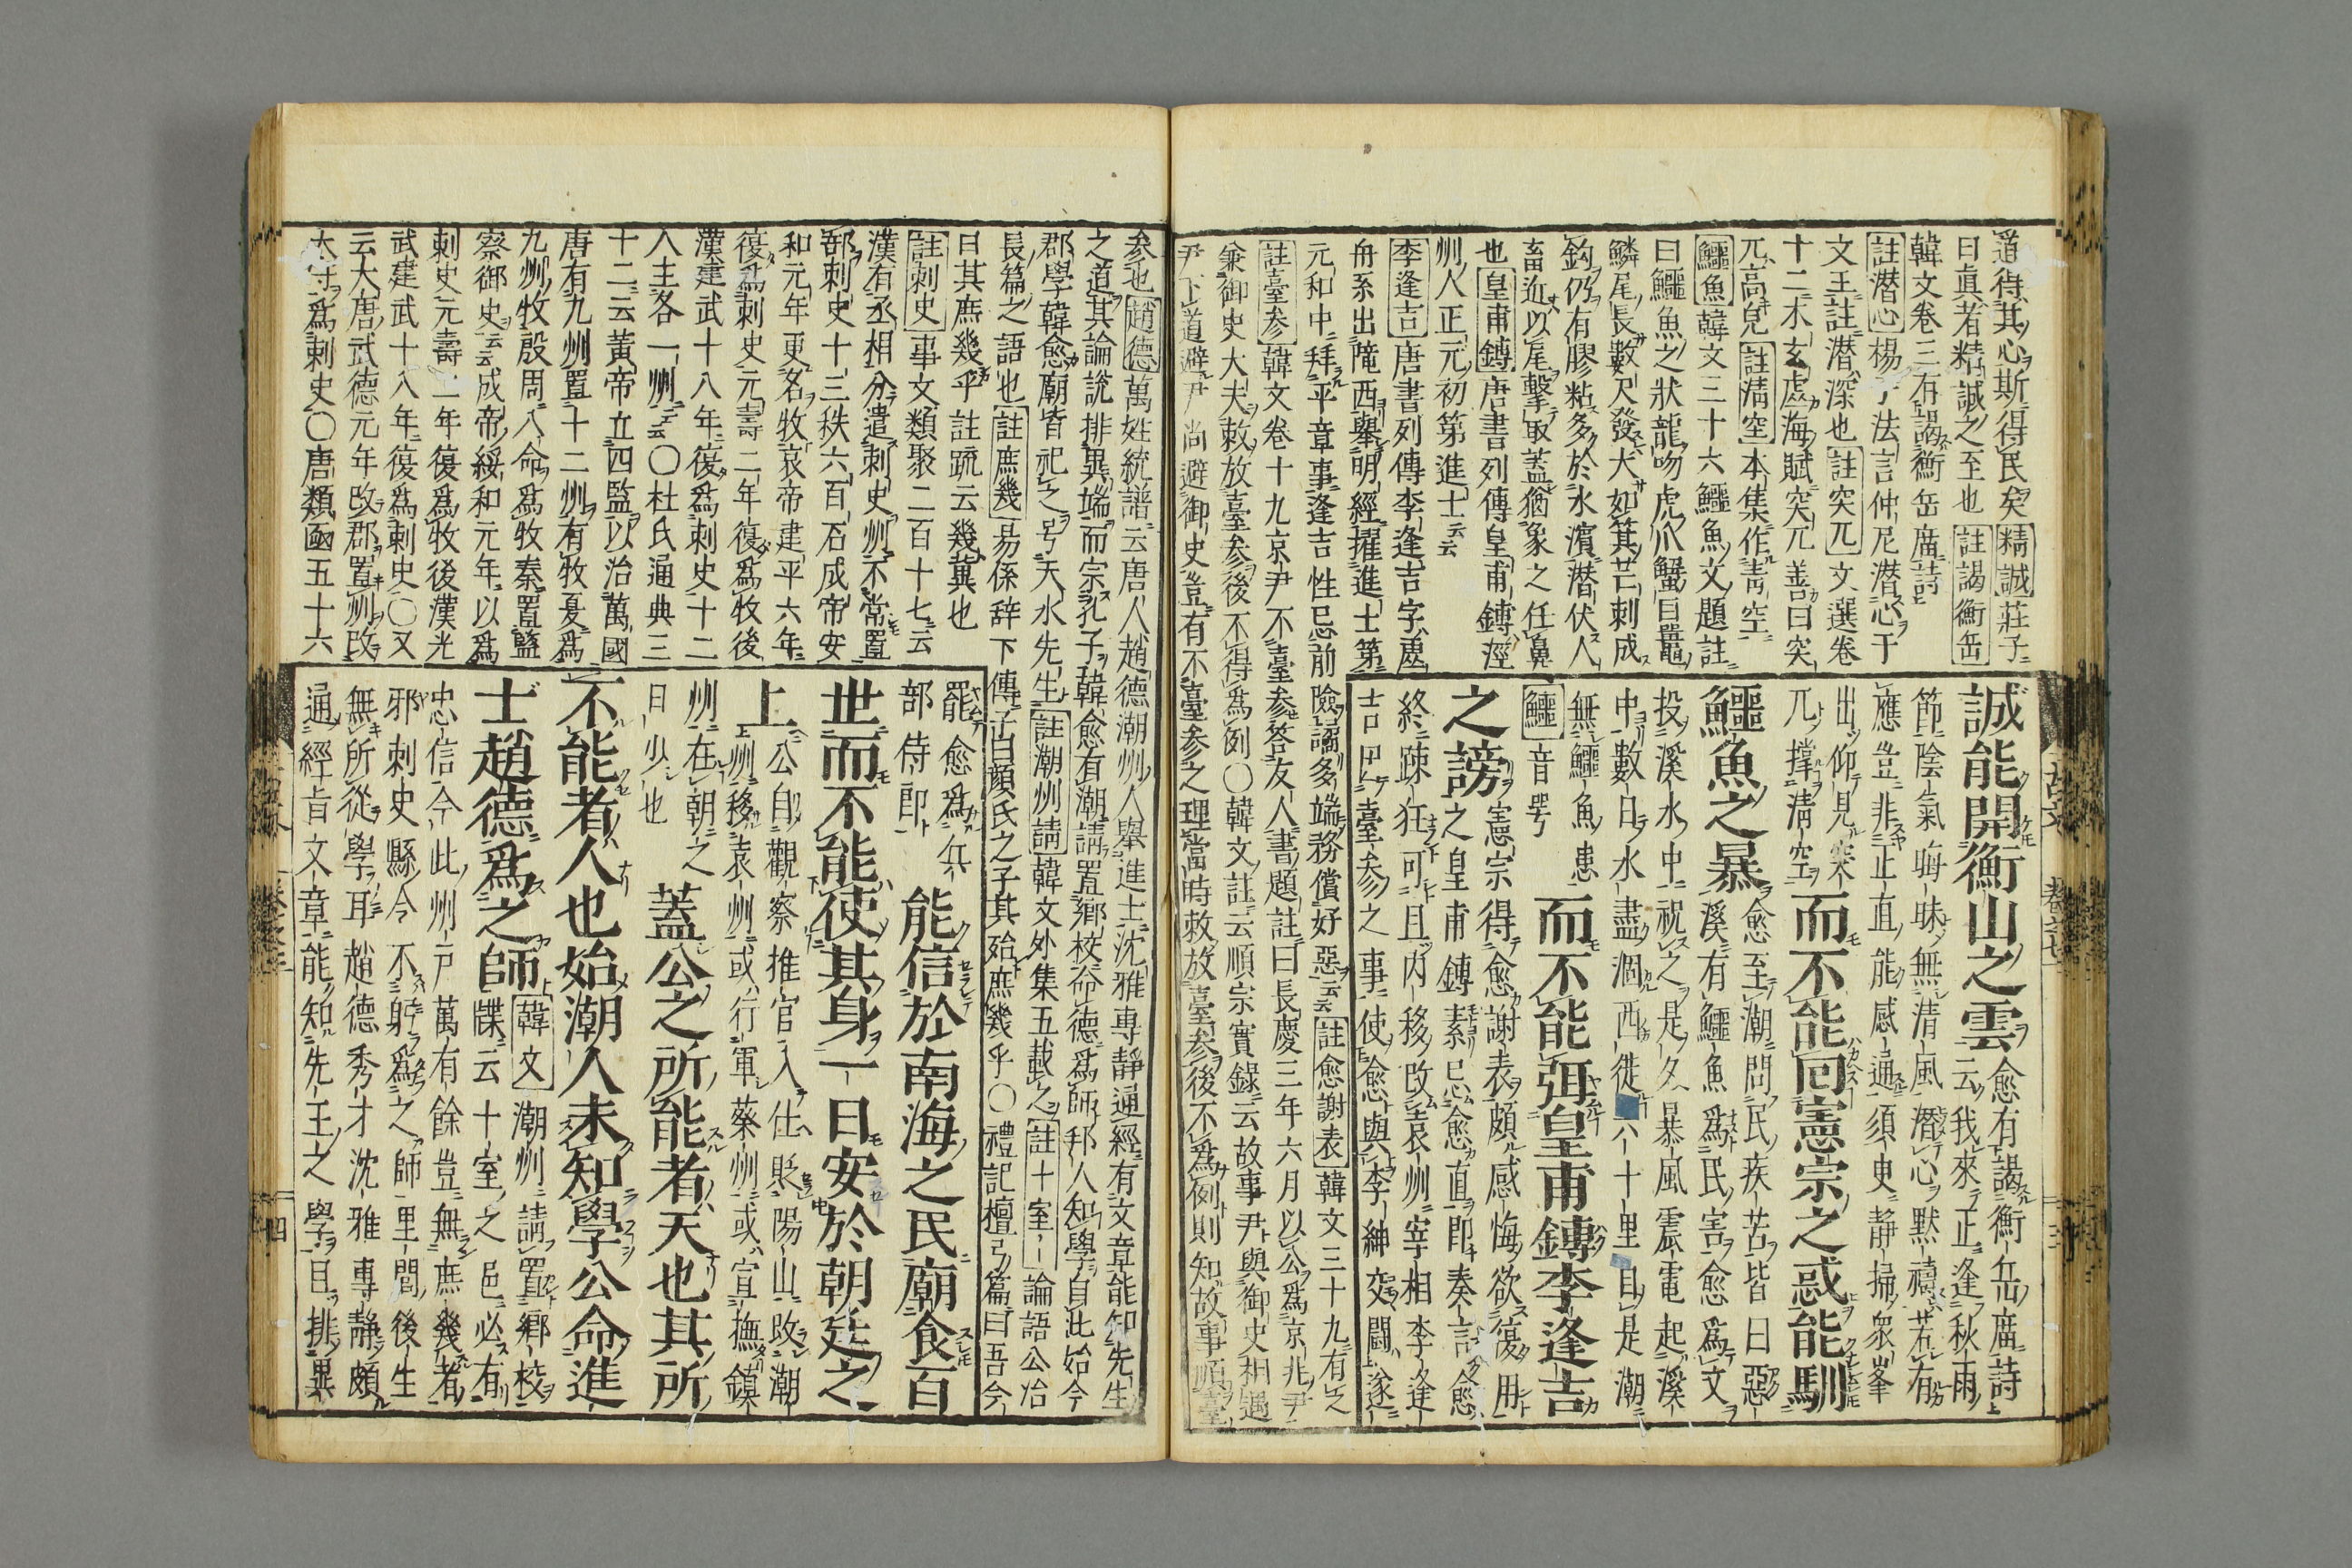 道得其心斯得民矣精誠莊子
曰眞者精誠之至也註謁衡岳
韓文卷三有謁衡岳廣詩
註潜心楊子法言仲尼潜心于
文王註潜深也註突兀文選卷
十二木玄虚海賦突兀善曰突
兀高皃註淸空本集作靑空
鱷魚韓文三十六鱷魚文題註
曰鱷魚之狀龍吻虎爪蟹目鼉
鱗尾長數尺發大如箕芒刺成
鈎仍有膠粘多於水濱潜伏人
畜近以尾擊取蓋猶象之任鼻
也皇甫鏄唐書列傳皇甫鏄涇
州人正元初第進士云云
李逢吉唐書列傳李逢吉字虚
舟系出隴西舉明經擢進士第
元和中拜平章事逢吉性忌前險譎多端務償好惡云云註愈謝表韓文三十九有之
註臺参韓文卷十九京尹不臺参答友人書題註曰長慶三年六月以公爲京兆尹
兼御史大夫敕放臺参後不得爲例〇韓文註云順宗實錄云故事尹與御史相遇
尹下道避尹尚避御史豈有不臺参之理當時敕放臺参後不爲例則知故事須臺
誠能開衡山之雲愈有謁衡岳廣詩
云我來正逢秋雨
節陰氣晦昧無清風潛心默禱若有
應豈非正直能感通須臾靜掃衆峯
出仰見突
兀撑淸空而不能回憲宗之惑能馴
鱷魚之暴愈至潮問民疾苦皆曰惡
溪有鱷魚爲民害愈爲文
投溪水中祝之是夕暴風震電起溪
中數日水盡涸西徙六十里自是潮
無鱷魚患
鱷音咢而不能弭皇甫鏄李逢吉
之謗憲宗得愈謝表頗感悔欲復用
之皇甫鏄素忌愈直即奏言愈
終疎狂可且内移改袁州宰相李逢
吉因臺参之事使愈與李紳交鬭遂
参也趙德萬姓統譜云唐人趙德潮州人舉進士沈雅專靜通經有文章能知先生
之道其論說排異端而宗孔子韓愈有潮請置鄉校命德爲師邦人知學自此始今
郡學韓愈廟皆祀之号天水先生註潮州請韓文外集五載之註十室論語公冶
長篇之語也註庶幾易係辞下傳子曰顏氏之子其殆庶幾乎〇禮記檀弓篇曰吾今
日其庶幾乎註疏云幾冀也
註刺史事文類聚二百十七云
漢有丞相分遣刺史州不常置
部刺史十三秩六百石成帝安
和元年更名牧哀帝建平六年
復爲刺史元壽二年復爲牧後
漢建武十八年復爲刺史十二
人主各一州云云〇杜氏通典三
十二云黃帝立四監以治萬國
唐有九州置十二州有牧夏爲
九州牧殷周八命爲牧秦置監
察御史云云成帝綏和元年以爲
刺史元壽二年復爲牧後漢光
武建武十八年復爲刺史〇又
云大唐武德元年改郡置州改
太守爲刺史〇唐類函五十六
罷愈爲兵
部侍郎能信於南海之民廟食百
世而不能使其身一日安於朝廷之
上公自觀察推官入仕貶陽山改潮
州移袁州或行軍蔡州或宣撫鎭
州在朝之
日少也蓋公之所能者天也其所
不能者人也始潮人未知學公命進
士趙德爲之師韓文潮州請置鄉校
牒云十室之邑必有
忠信今此州戸萬有餘豈無庶幾者
邪刺史縣令不躬爲之師里閭後生
無所從學耳趙德秀才沈雅專靜頗
通經旨文章能知先王之學且排異